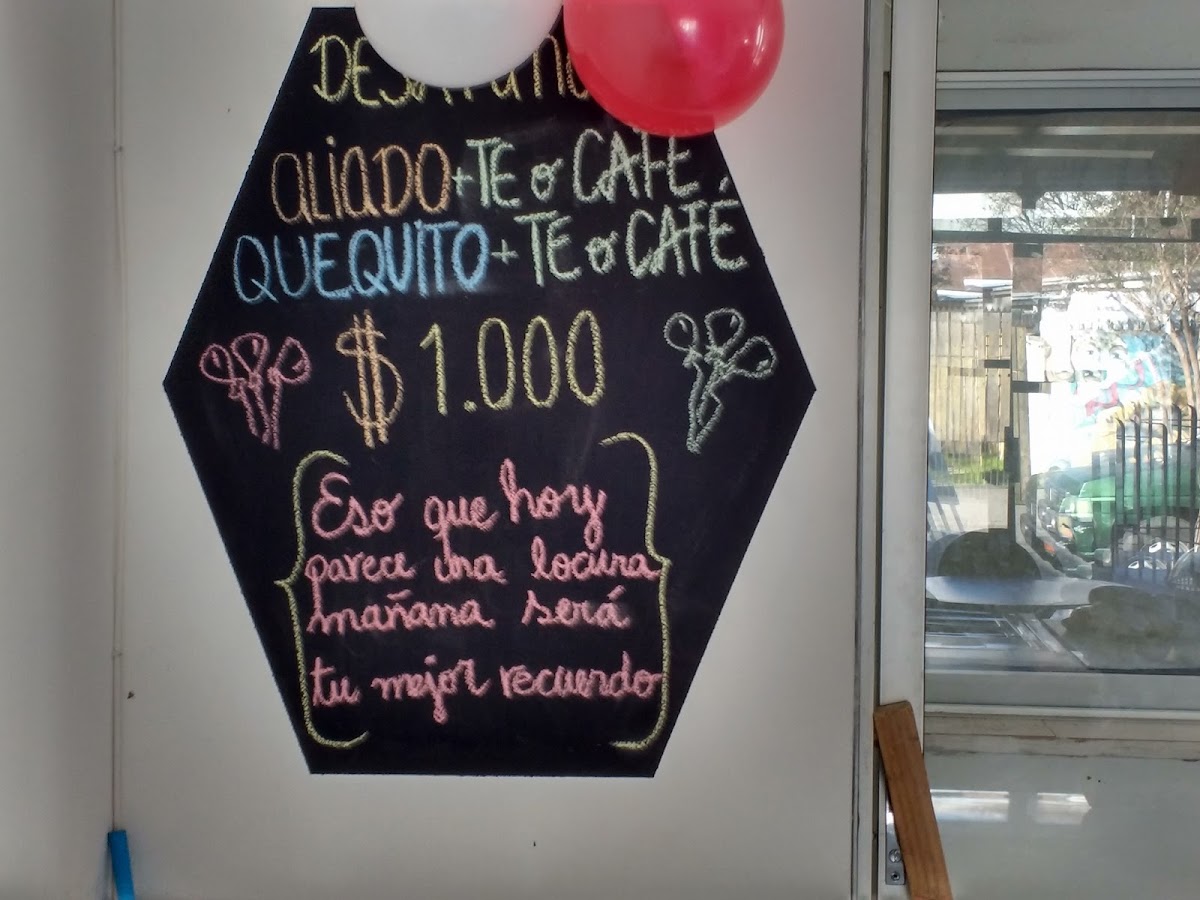 ALIADO + TE o CAFÉ
QUEQUITO + TE o CAFÉ
$ 1.000
Eso que hoy
parece una locura
mañana será
tu mejor recuerdo